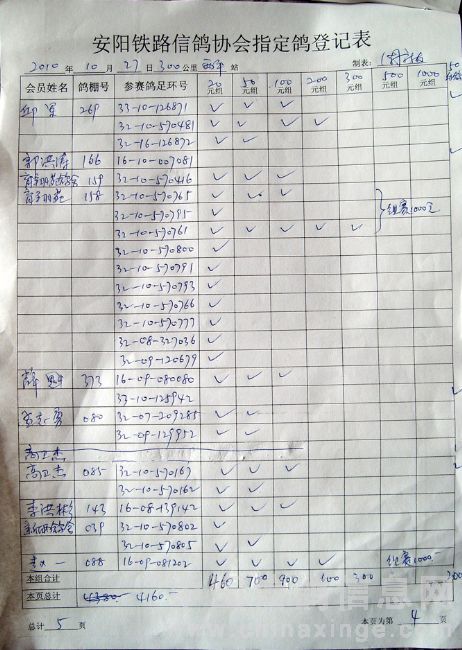 安阳铁路信鸽协会指定鸽登记表
2010 年 10 月 27 日 300 公里 西平 站 制表:
会员姓名 鸽棚号 参赛鸽足环号 20元组 50元组 100元组 200元组 300元组 500元组 1000元组
269 33-10-126871 ✓ ✓ ✓
32-10-570481 ✓ ✓ ✓ ✓
32-16-126872 ✓ ✓
郭洪涛 166 16-10-007081
159 32-10-570416 ✓ ✓ ✓
158 32-10-570765 ✓ ✓ ✓
32-10-570795 ✓ 组赛1000元
32-10-570761 ✓ ✓ ✓ ✓ ✓
32-10-570800 ✓
32-10-570791 ✓
32-10-570793 ✓
32-10-570766 ✓
32-10-570777 ✓
32-08-327036 ✓
32-09-120679 ✓
373 16-09-080080 ✓ ✓ ✓
33-10-125942 ✓
080 32-07-209285 ✓ ✓
32-09-129952 ✓ ✓
高卫杰
高卫杰 085 32-10-570167 ✓ ✓ ✓
32-10-570162 ✓ ✓
李洪彬 143 16-08-139142 ✓ ✓ ✓
039 32-10-570802 ✓
32-10-570805 ✓ ✓
088 16-09-081202 ✓ ✓ ✓ ✓ 组赛1000-
本组合计 460 700 900 600 300
本页总计 4160.-
总计 5 页 本页为第 4 页
信息网
www.chinaxinge.com